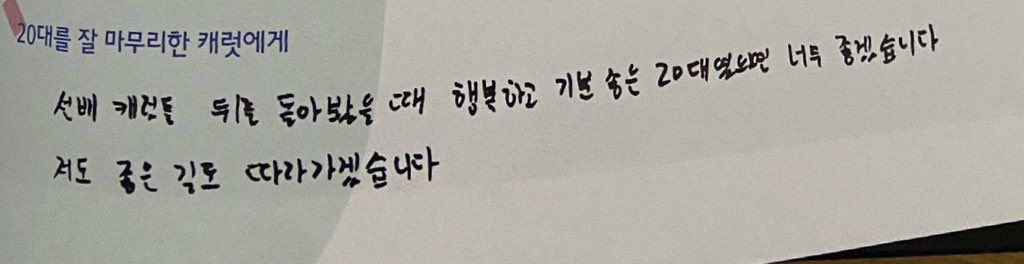 20대를 잘 마무리한 캐럿에게
선배 캐럿들 뒤를 돌아봤을 때 행복하고 기분 좋은 20대였으면 너무 좋겠습니다
저도 좋은 길로 따라가겠습니다